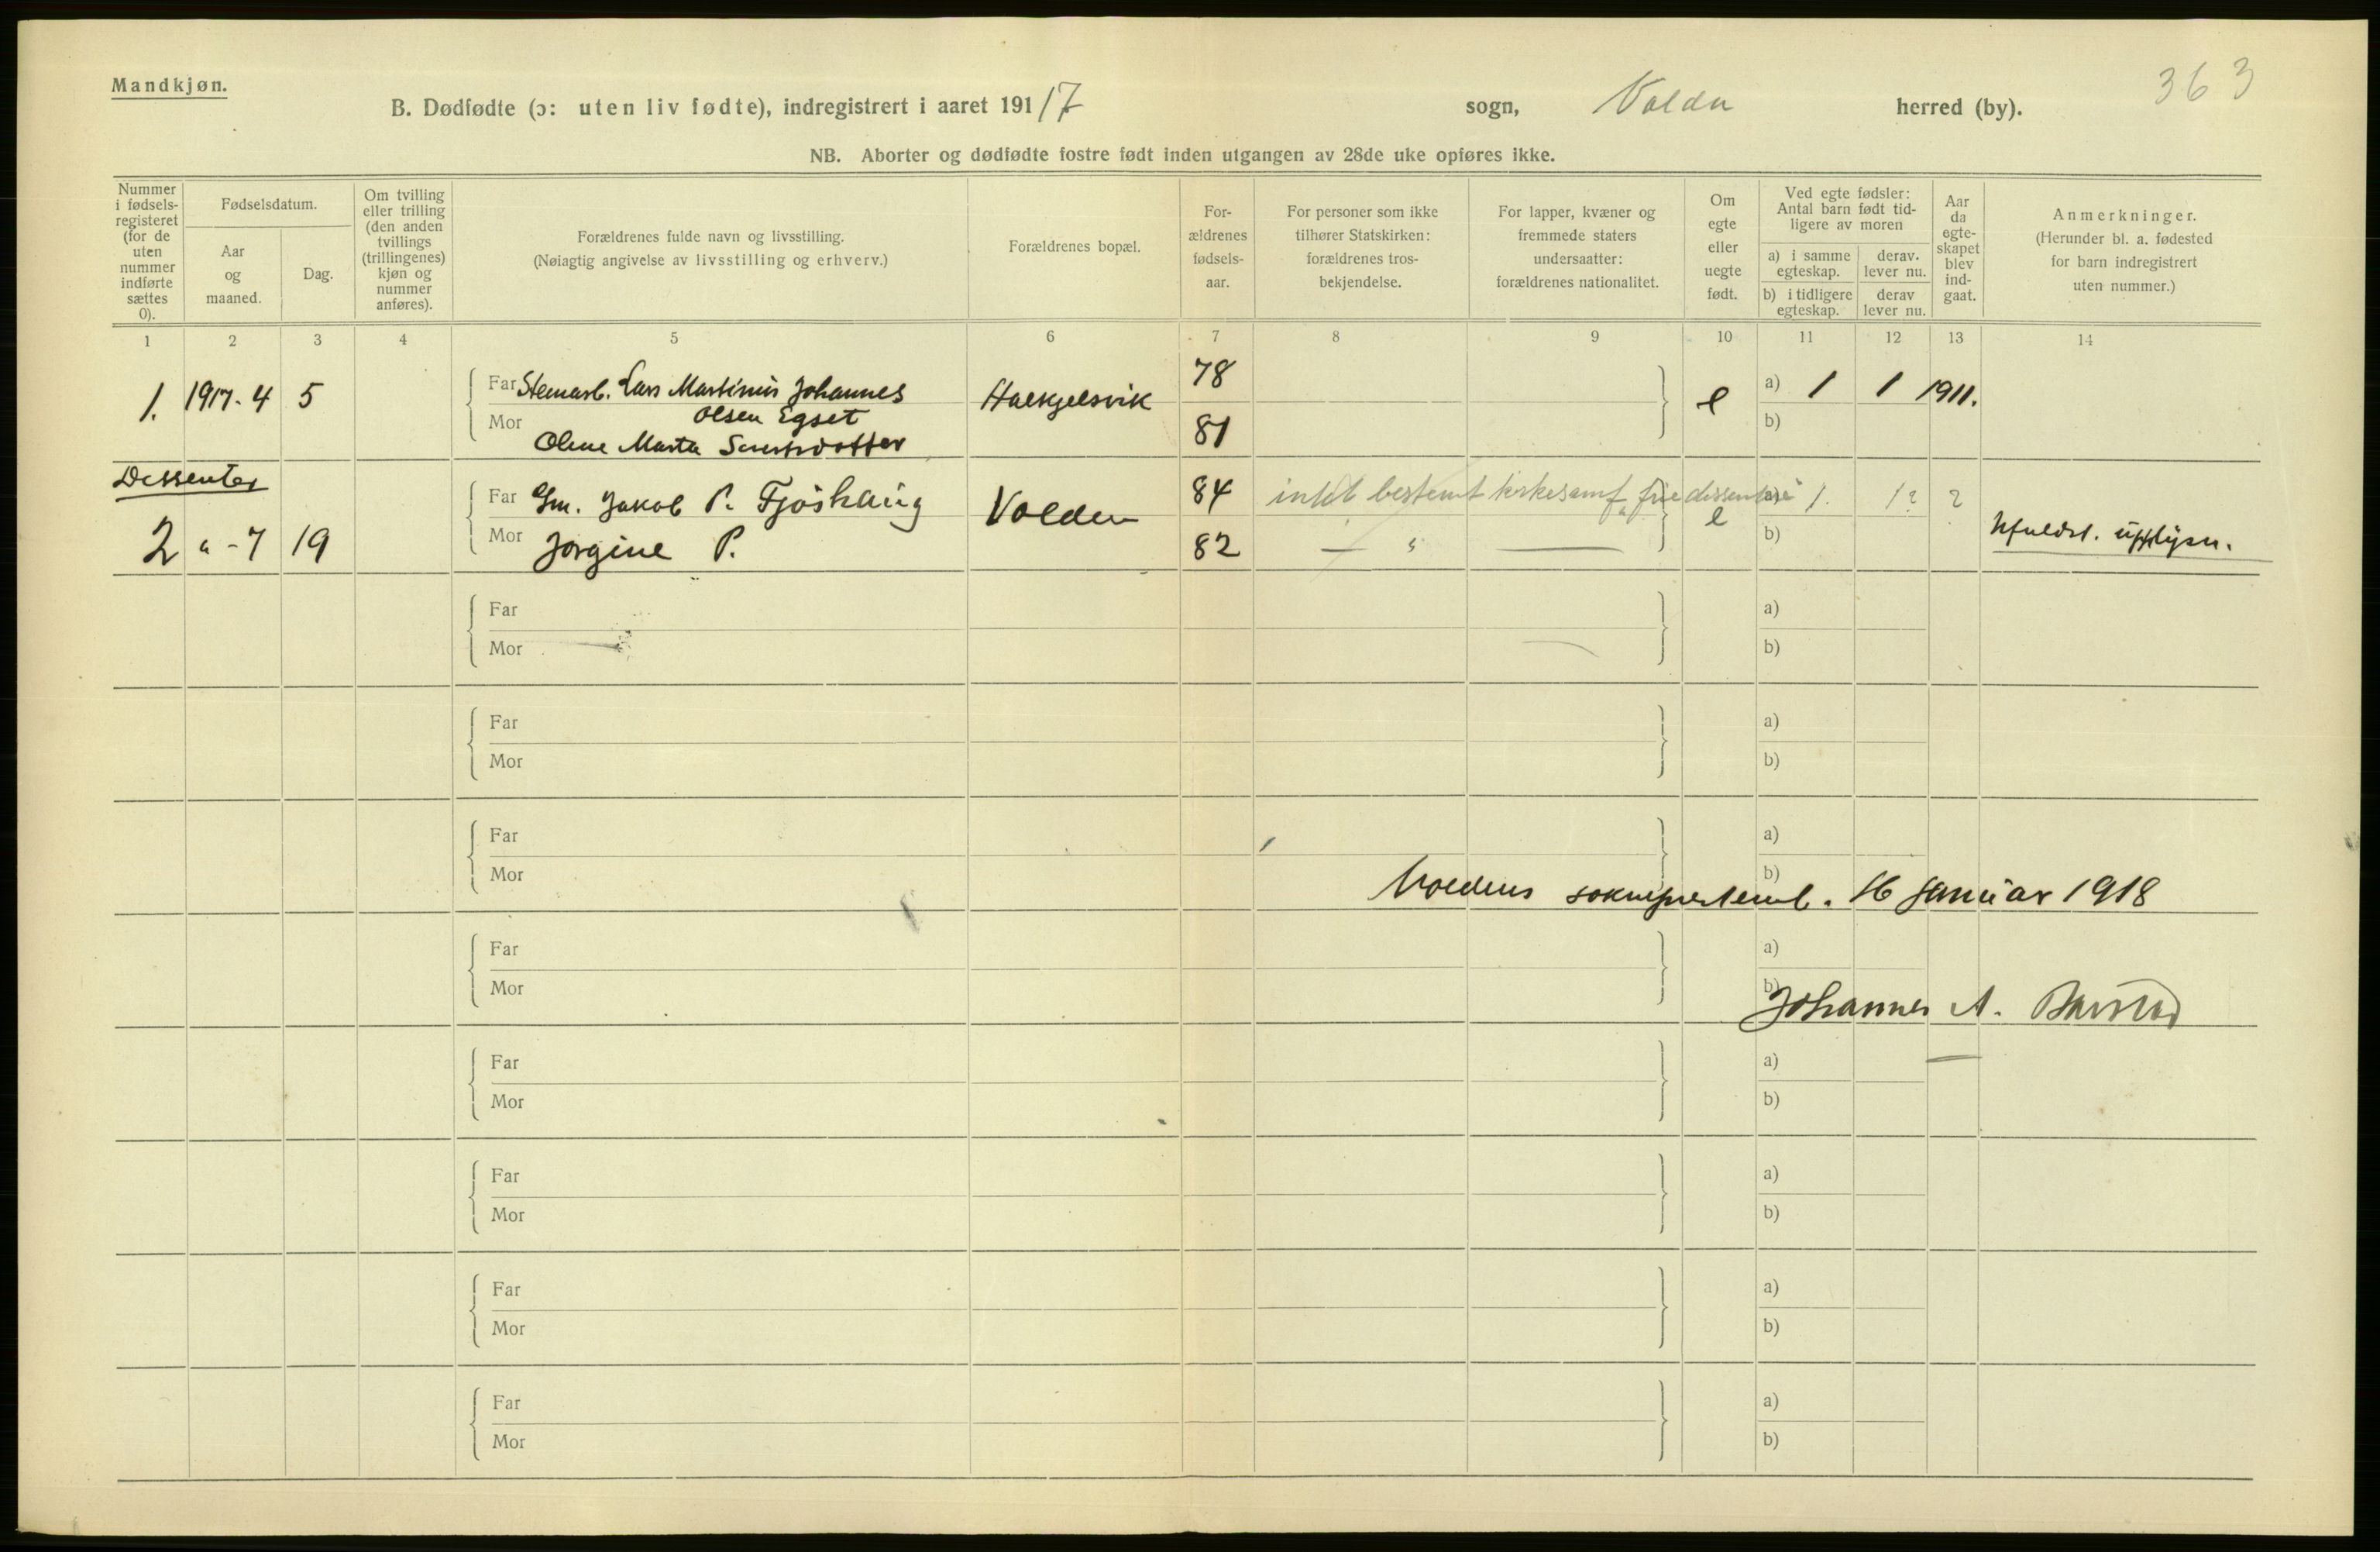 Mandkjøn.
363
B. Dødfødte (ɔ: uten liv fødte), indregistrert i aaret 191/7 sogn, Volda herred (by).
NB. Aborter og dødfødte fostre født inden utgangen av 28de uke opføres ikke.
Nummer i fødsels-registeret (for de uten nummer indførte sættes 0).
Fødselsdatum.
Aar og maaned.
Dag.
Om tvilling eller trilling (den anden tvillings (trillingenes) kjøn og nummer anføres).
Forældrenes fulde navn og livsstilling.
(Nøiagtig angivelse av livsstilling og erhverv.)
Forældrenes bopæl.
For-ældrenes fødsels-aar.
For personer som ikke tilhører Statskirken: forældrenes tros-bekjendelse.
For lapper, kvæner og fremmede staters undersaatter: forældrenes nationalitet.
Om egte eller uegte født.
Ved egte fødsler: Antal barn født tid-ligere av moren
a) i samme egteskap.
derav. lever nu.
b) i tidligere egteskap.
derav lever nu.
Aar da egte-skapet blev ind-gaat.
Anmerkninger.
(Herunder bl. a. fødested for barn indregistrert uten nummer.)
1 2 3 4 5 6 7 8 9 10 11 12 13 14
1. 1917-4 5 Far Stenarb. Lars Martinus Johannes Halkjelsvik 78 e a) 1 1 1911.
Olsen Egset
Mor 81 b)
Olene Marta
Dissenter
Far Gm. Jakob P. Fjøshaug Volden 84 intet bestemt kirkesamf, frie dissentere a) 1. 1? ?
2 " -7 19 Mor Jørgine P. 82 — " — e b) Ufuldst. upplysn.
Far a)
Mor b)
Far a)
Mor b)
Far a)
Mor b)
Voldens sokneprestemb. 16 januar 1918
Far a)
Mor b)
Johannes A. Barstad
Far a)
Mor b)
Far a)
Mor b)
Far a)
Mor b)
Far a)
Mor b)